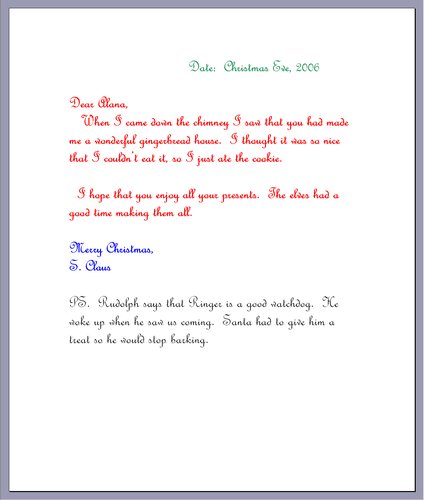 Date: Christmas Eve, 2006
Dear Alana,
When I came down the chimney I saw that you had made
me a wonderful gingerbread house. I thought it was so nice
that I couldn't eat it, so I just ate the cookie.
I hope that you enjoy all your presents. The elves had a
good time making them all.
Merry Christmas,
S. Claus
PS. Rudolph says that Ringer is a good watchdog. He
woke up when he saw us coming. Santa had to give him a
treat so he would stop barking.